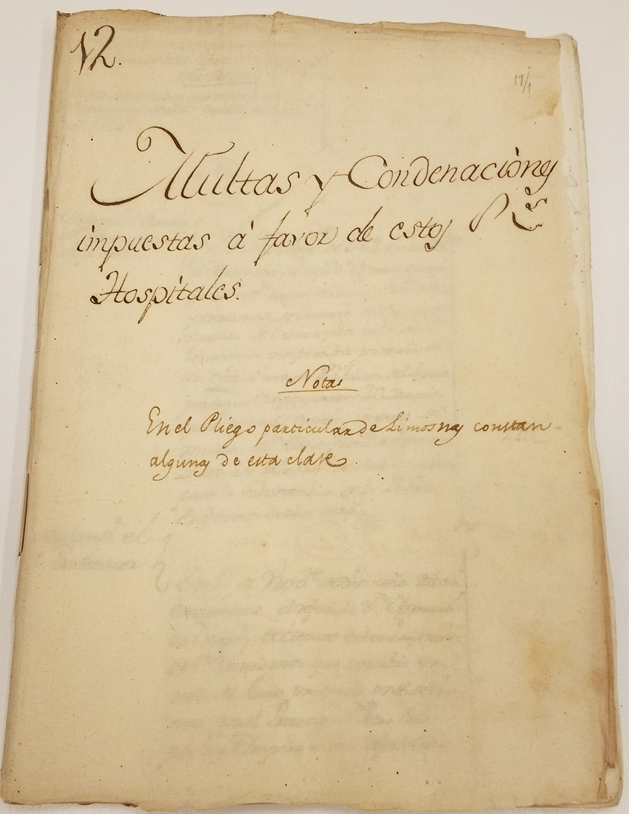 12.
11/1
Multas y Condenaciones
impuestas à favor de estos Rs.
Hospitales.
Nota
En el Pliego particular de Limosnas constan
algunas de esta clase.